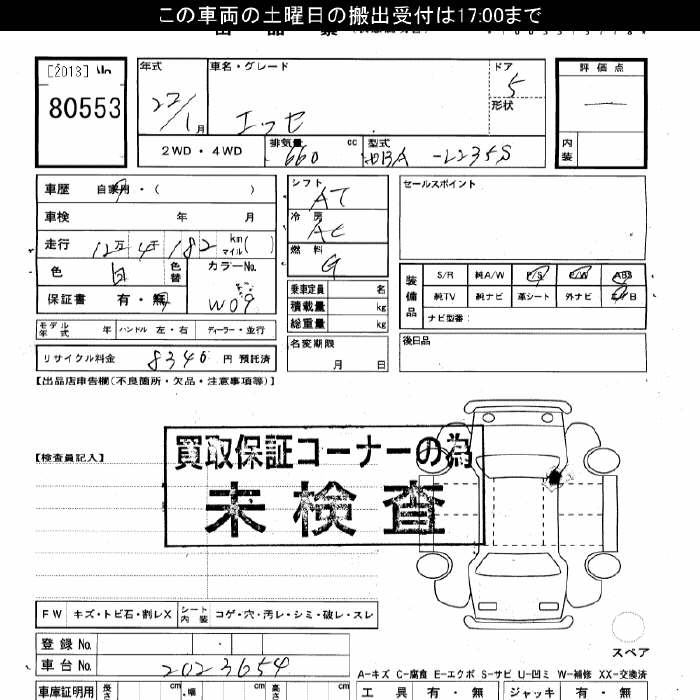 この車両の土曜日の搬出受付は17:00まで
[2013]
80553
年式
22/1月
車名・グレード
エッセ
ドア
5
形状
評価点
内装
2WD・4WD
排気量 660 cc
型式 DBA-L235S
車歴 自家用・( )
車検 年 月
走行 12万4千182 km マイル( )
色 白 色替
カラーNo. W09
保証書 有・無
モデル年式 年 ハンドル 左・右 ディーラー・並行
リサイクル料金 8340 円 預託済
シフト AT
冷房 AC
燃料 G
乗車定員 名
積載量 kg
総重量 kg
名変期限 月 日
セールスポイント
装備品
S/R 純A/W P/S P/W ABS
純TV 純ナビ 革シート 外ナビ エアB
ナビ型番:
後日品
【出品店申告欄(不良箇所・欠品・注意事項等)】
【検査員記入】
買取保証コーナーの為
未検査
FW キズ・トビ石・割レX シート内装 コゲ・穴・汚レ・シミ・破レ・スレ
登録No.
車台No. 2023654
スペア
A-キズ C-腐食 E-エクボ S-サビ U-凹ミ W-補修 XX-交換済
車庫証明用 長さ cm 幅 cm 高さ cm
工具 有・無 ジャッキ 有・無